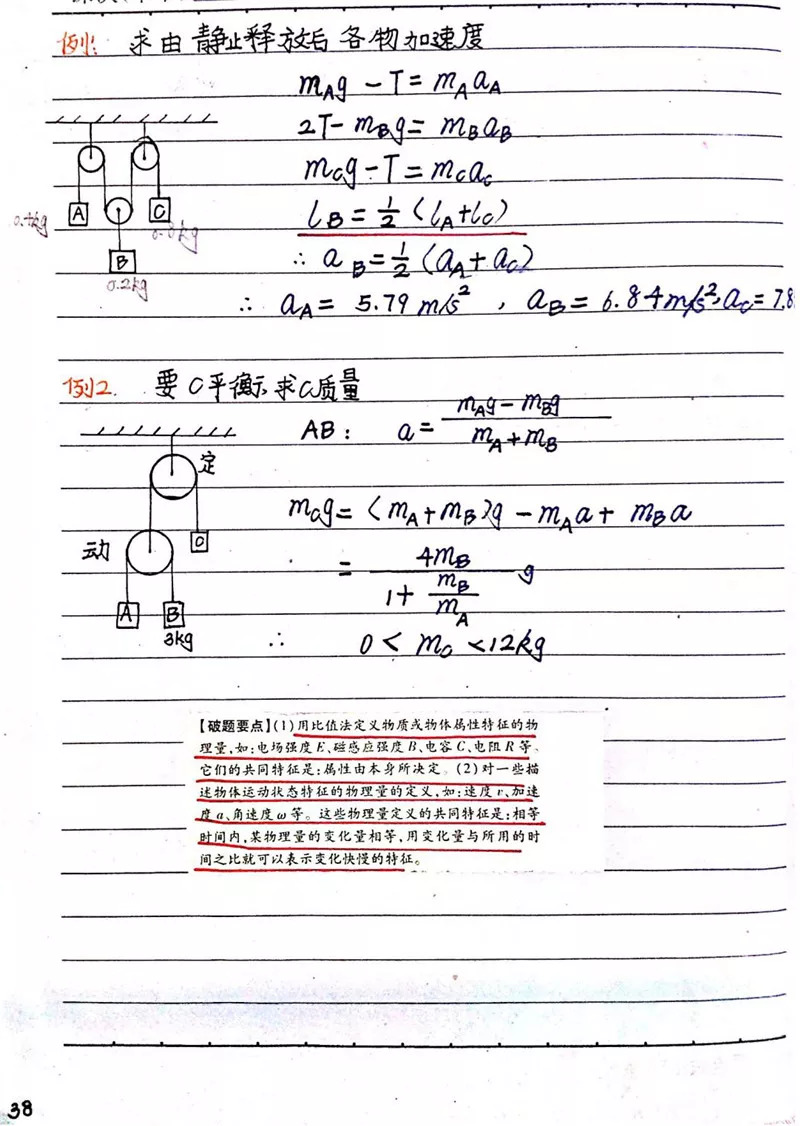 例1: 求由静止释放后各物加速度
mAg - T = mAaA
2T - mBg = mBaB
mCg - T = mCaC
A
C
B
0.2kg
lB = 1/2 (lA + lC)
∴ aB = 1/2 (aA + aC)
∴ aA = 5.79 m/s², aB = 6.84 m/s², aC = 7.8
例2. 要C平衡,求C质量
AB: a = (mAg - mBg)/(mA + mB)
定
C
动
A
B
3kg
mCg = (mA + mB)g - mAa + mBa
= 4mB/(1 + mB/mA) g
∴ 0 < mC < 12kg
【破题要点】(1)用比值法定义物质或物体属性特征的物
理量,如:电场强度E、磁感应强度B、电容C、电阻R等。
它们的共同特征是:属性由本身所决定。(2)对一些描
述物体运动状态特征的物理量的定义,如:速度v、加速
度a、角速度ω等。这些物理量定义的共同特征是:相等
时间内,某物理量的变化量相等,用变化量与所用的时
间之比就可以表示变化快慢的特征。
38